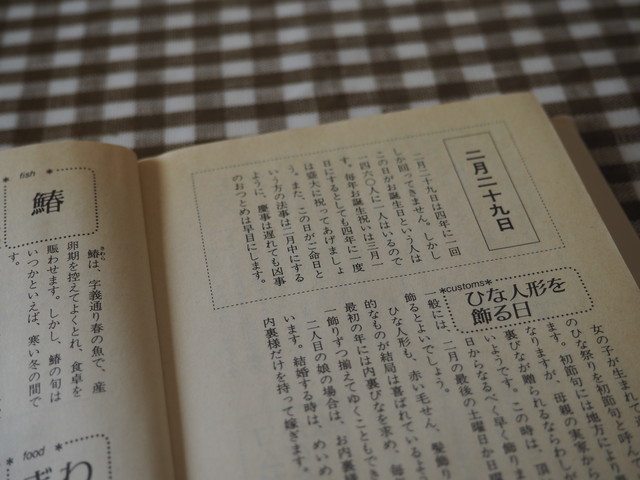 二月二十九日
二月二十九日は四年に一回
しか回ってきません。しかし
この日がお誕生日という人は
一四六〇人に一人はいるので
す。毎年お誕生祝いは三月一
日にするとしても四年に一度
は盛大に祝ってあげましょ
う。また、この日がご命日と
いう方の法事は二月中にする
ように、慶事は遅れても凶事
のおつとめは早目にします。
*customs*
ひな人形を
飾る日
女の子が生まれて
のひな祭りを初節句と呼ん
ます。初節句には地方により
なりますが、母親の実家から
裏びなが贈られるならわしが
いようです。この時は、頂
日からなるべく早く飾りま
一般には、二月の最後の土曜日か日曜
飾るとよいでしょう。
ひな人形も、赤い毛せん、髪飾り
的なものが結局は喜ばれているよう
最初の年には内裏びなを求め、毎
一飾りずつ揃えてゆくこともでき
二人目の娘の場合は、お内裏様
います。結婚する時は、めいめい
内裏様だけを持って嫁ぎます。
* fish *
鰆
鰆は、字義通り春の魚で、産
さわら
卵期を控えてよくとれ、食卓を
賑わせます。しかし、鰆の旬は
いつかといえば、寒い冬の間で
す。
* food *